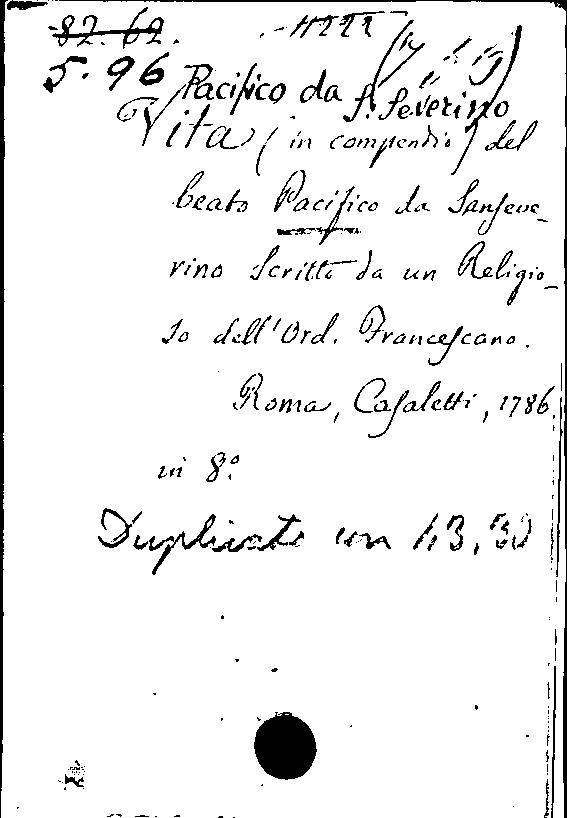 82. 62.
5. 96 Pacifico da S. Severino
Vita (in compendio) del
beato Pacifico da Sanseve-
rino Scritta da un Religio-
so dell'Ord. Francescano.
Roma, Casaletti, 1786.
in 8º.
Duplicato con 43, 50